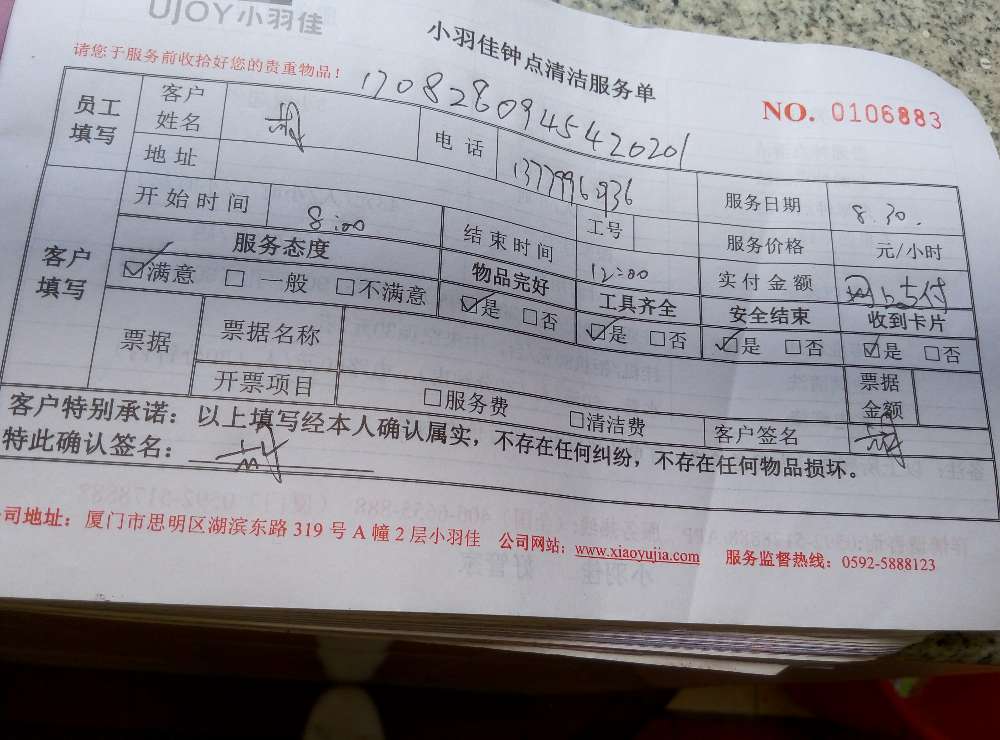 UJOY小羽佳
小羽佳钟点清洁服务单
请您于服务前收拾好您的贵重物品！
NO. 0106883
170828094542020 1
员工填写
客户姓名
电话
服务日期 8.30.
地址
工号
服务价格 元/小时
客户填写
开始时间 8:00
结束时间 12:00
实付金额
服务态度 物品完好 工具齐全 安全结束 收到卡片
☑满意 □一般 □不满意 ☑是 □否 ☑是 □否 ☑是 □否 ☑是 □否
票据 票据名称
开票项目 □服务费 □清洁费
票据金额
客户签名
客户特别承诺：以上填写经本人确认属实，不存在任何纠纷，不存在任何物品损坏。
特此确认签名：
司地址：厦门市思明区湖滨东路 319 号 A 幢 2 层小羽佳 公司网站：www.xiaoyujia.com 服务监督热线：0592-5888123